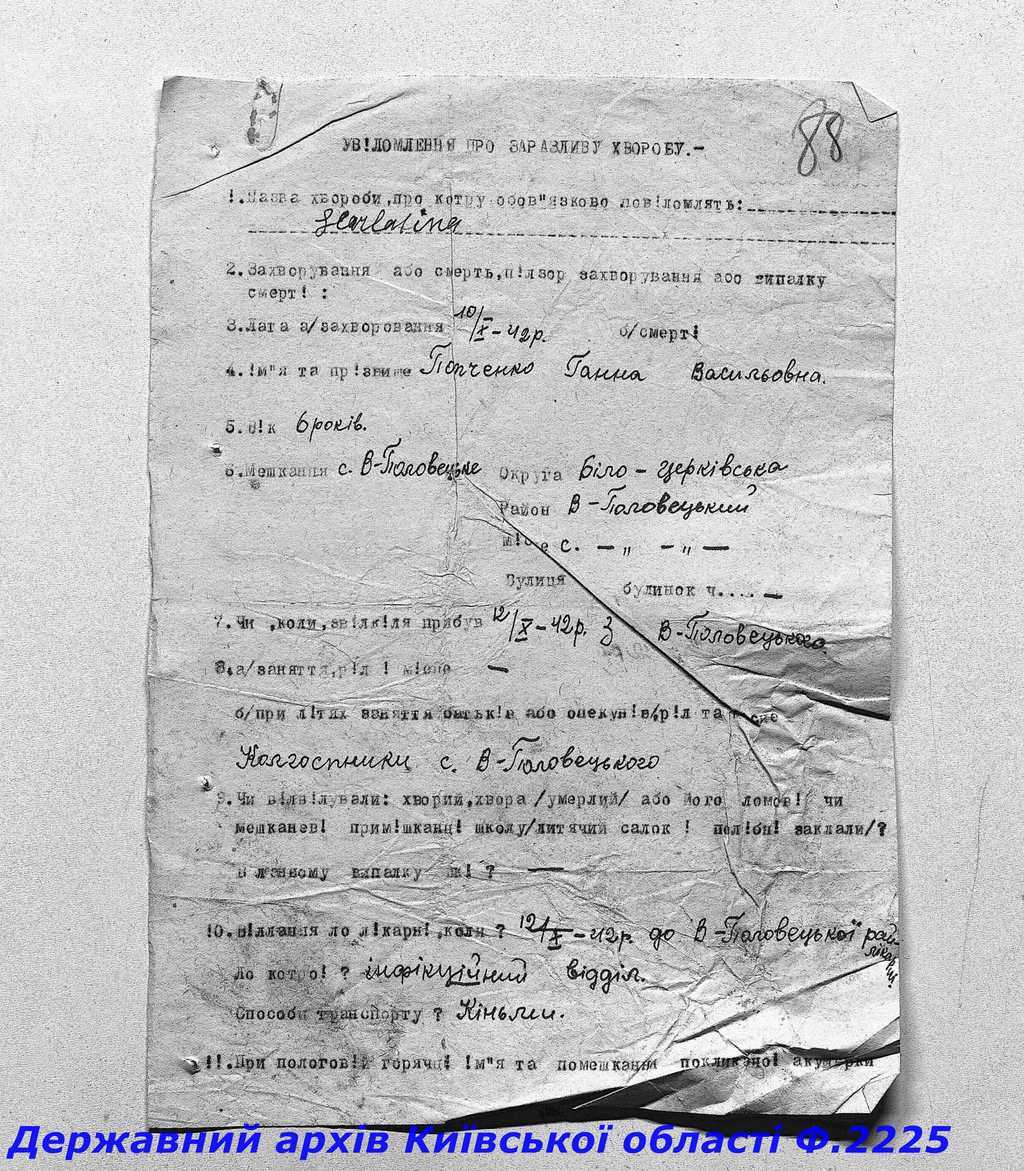 88
УВ!ДОМЛЕННЯ ПРО ЗАРАЗЛИВУ ХВОРОБУ.-
!.Назва хвороби,про котру обов"язково пов!домлять:
Scarlatina
2.Захворування або смерть,п!дзор захворування або випадку
смерт! :
3.Дата а/захворовання 10/X-42р. б/смерт!
4.!м"я та пр!звище Попченко Ганна Васильовна.
5.В!к 6 років.
6.Мешкання с. В-Половецьке Округа Біло-церківська
Район В-Половецький
м!сце с. — „ — „ —
Вулиця будинок ч.... —
7.Чи ,коли,зв!дк!ля прибув 12/X-42р. З В-Половецького.
8.а/заняття,р!д ! м!сце —
б/при д!тях заняття батьк!в або опекун!в,р!д та м!сце
Колгоспники с. В-Половецького
9.Чи в!дв!дували: хворий,хвора /умерлий/ або його домов! чи
мешканев! прим!шканц! школу/дитячий садок ! под!бн! заклади/?
В данному випадку як! ? —
!0.В!ддання до л!карн!,коли ? 12/X-42р. до В-Половецької рай-лікарні
до котро! ? інфікційний відділ.
Способи транспорту ? Кіньми.
!!.При пологов!й горячц! !м"я та помешкання покликано! акушерки
Державний архів Київської області Ф.2225